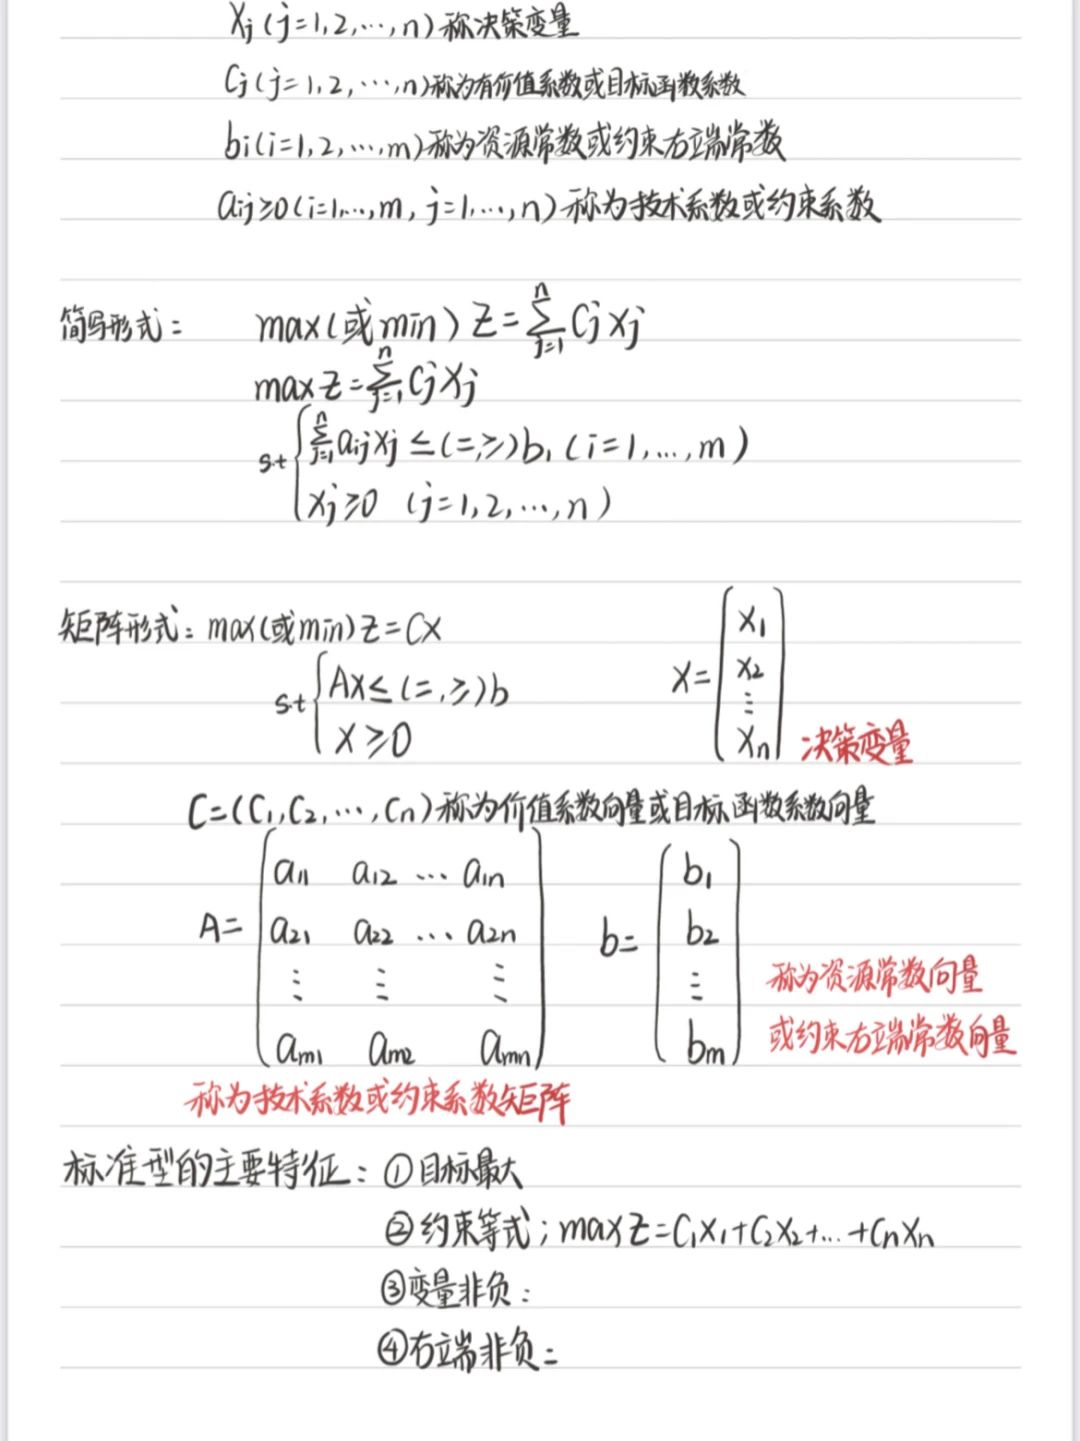 xj (j=1,2,…,n) 称决策变量
Cj (j=1,2,…,n)称为有价值系数或目标函数系数
bi(i=1,2,…,m)称为资源常数或约束右端常数
aij≥0(i=1,…,m, j=1,…,n) 称为技术系数或约束系数
简写形式: max(或min) Z=∑_{j=1}^{n} Cj xj
max Z=∑_{j=1}^{n} Cj xj
s.t { ∑_{j=1}^{n} aij xj ≤(=,≥)b₁ (i=1,…,m)
xj≥0 (j=1,2,…,n)
矩阵形式: max(或min) Z=CX
s.t { AX≤(=,≥)b
X≥0
X= ( x₁
x₂
⋮
xn ) 决策变量
C=(C₁,C₂,…,Cn)称为价值系数向量或目标函数系数向量
A= ( a11 a12 … a1n
a21 a22 … a2n
⋮ ⋮ ⋮
am1 am2 amn )
b= ( b₁
b₂
⋮
bm )
称为资源常数向量
或约束右端常数向量
称为技术系数或约束系数矩阵
标准型的主要特征: ①目标最大
②约束等式; max Z=C₁X₁+C₂X₂+…+CnXn
③变量非负:
④右端非负: